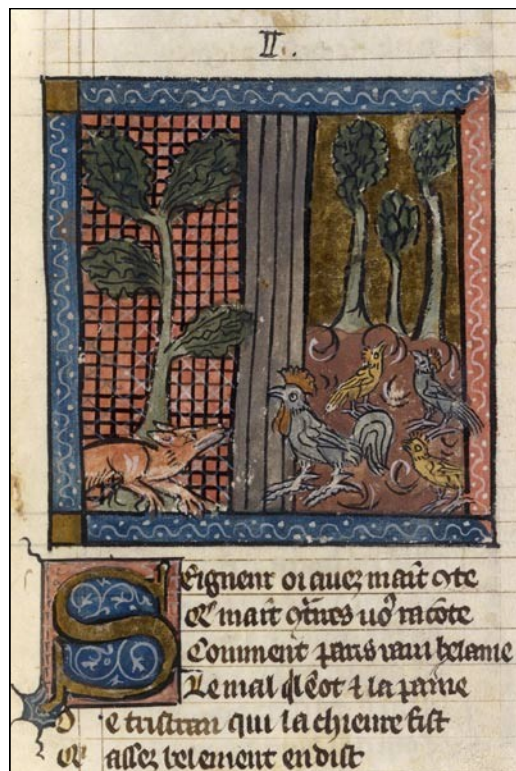 II.
Seigneur oi auez maīt ꝯte
Qe maīt ꝯteres uoꝰ racōte
Comment paris raui helaine
Le mal qlēot ⁊ la paine
De tristran qui la chieure fist
assez belement en dist